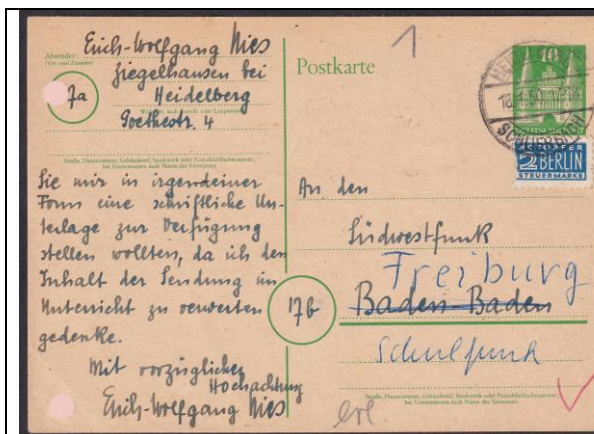 Absender:
Erich-Wolfgang Nies
Ziegelhausen bei
17a
Heidelberg
Goethestr. 4
Straße, Hausnummer, Gebäudeteil, Stockwerk oder Postschließfachnummer;
bei Untermietern auch Name des Vermieters
Sie mir in irgendeiner
Form eine schriftliche Un-
terlage zur Verfügung
stellen wollten, da ich den
Inhalt der Sendung im
Unterricht zu verwerten
gedenke.
Mit vorzüglicher
Hochachtung
Erich-Wolfgang Nies
1
Postkarte
10
NOTOPFER
2 BERLIN
STEUERMARKE
An den
Südwestfunk
Freiburg
17b
Baden Baden
Schulfunk
Straße, Hausnummer, Gebäudeteil, Stockwerk oder Postschließfachnummer;
bei Untermietern auch Name des Vermieters
erl